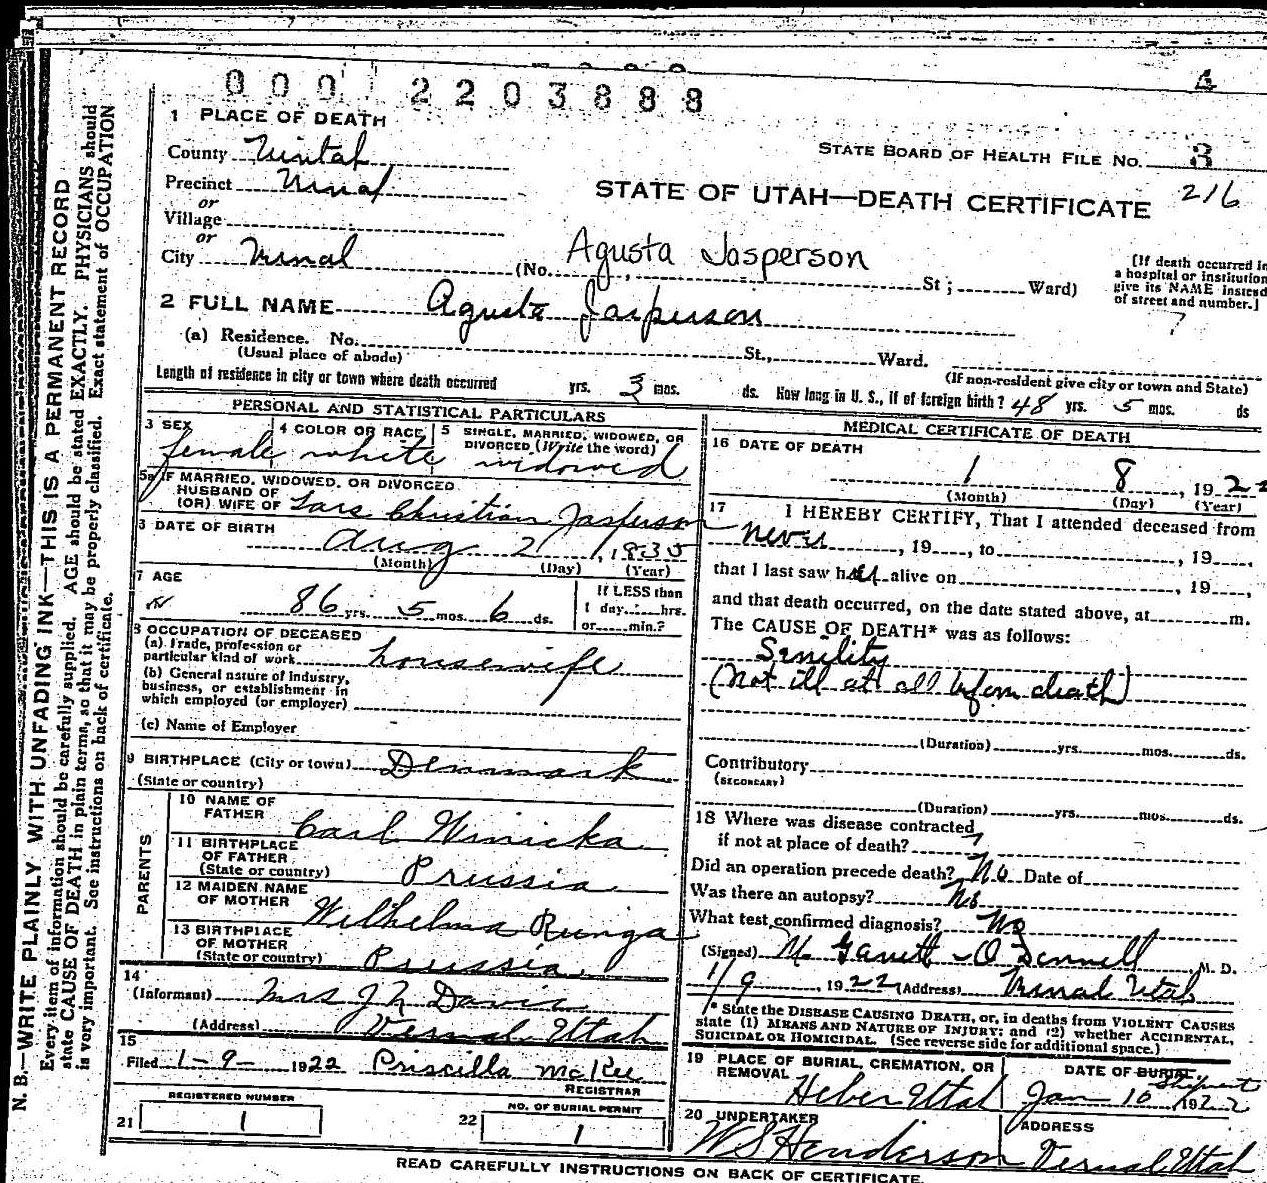 000 2203888
1 PLACE OF DEATH
County Uintah
STATE BOARD OF HEALTH FILE No. 3
Precinct Vernal
216
or
STATE OF UTAH—DEATH CERTIFICATE
Village
or
City Vernal (No. Agusta Jasperson St; Ward)
[If death occurred in
a hospital or institution
give its NAME instead
of street and number.]
2 FULL NAME Agusta Jasperson
(a) Residence. No. St., Ward.
(Usual place of abode) (If non-resident give city or town and State)
Length of residence in city or town where death occurred yrs. 3 mos. ds. How long in U. S., if of foreign birth? 48 yrs. 5 mos. ds
PERSONAL AND STATISTICAL PARTICULARS
3 SEX 4 COLOR OR RACE 5 SINGLE, MARRIED, WIDOWED, OR
DIVORCED (Write the word)
female white widowed
5a IF MARRIED, WIDOWED, OR DIVORCED
HUSBAND OF
(OR) WIFE OF Lars Christian Jasperson
3 DATE OF BIRTH
Aug 2, 1835
(Month) (Day) (Year)
7 AGE
86 yrs. 5 mos. 6 ds.
If LESS than
1 day hrs.
or min.?
8 OCCUPATION OF DECEASED
(a) Trade, profession or
particular kind of work housewife
(b) General nature of industry,
business, or establishment in
which employed (or employer)
(c) Name of Employer
9 BIRTHPLACE (City or town) Denmark
(State or country)
PARENTS
10 NAME OF
FATHER Carl Winicka
11 BIRTHPLACE
OF FATHER
(State or country) Prussia
12 MAIDEN NAME
OF MOTHER Wilhelma Runga
13 BIRTHPLACE
OF MOTHER
(State or country) Prussia
14
(Informant) Mrs J N Davis
(Address) Vernal Utah
15
Filed 1-9- 1922 Priscilla McKee
REGISTRAR
REGISTERED NUMBER
21 1
NO. OF BURIAL PERMIT
22 1
MEDICAL CERTIFICATE OF DEATH
16 DATE OF DEATH
1 8, 1922
(Month) (Day) (Year)
17 I HEREBY CERTIFY, That I attended deceased from
never, 19, to, 19,
that I last saw her alive on, 19,
and that death occurred, on the date stated above, at m.
The CAUSE OF DEATH* was as follows:
Senility
(Not ill at all before death)
(Duration) yrs. mos. ds.
Contributory
(SECONDARY)
(Duration) yrs. mos. ds.
18 Where was disease contracted
if not at place of death? ?
Did an operation precede death? No Date of
Was there an autopsy? No
What test confirmed diagnosis? No
(Signed) M. Garrett-O'Donnell, M. D.
1/9, 1922 (Address) Vernal Utah
* State the DISEASE CAUSING DEATH, or, in deaths from VIOLENT CAUSES
state (1) MEANS AND NATURE OF INJURY; and (2) whether ACCIDENTAL,
SUICIDAL OR HOMICIDAL. (See reverse side for additional space.)
19 PLACE OF BURIAL, CREMATION, OR
REMOVAL Heber Utah
DATE OF BURIAL
Shipment
Jan 10 1922
20 UNDERTAKER
W S Henderson
ADDRESS
Vernal Utah
READ CAREFULLY INSTRUCTIONS ON BACK OF CERTIFICATE.
N. B.—WRITE PLAINLY WITH UNFADING INK—THIS IS A PERMANENT RECORD
Every item of information should be carefully supplied. AGE should be stated EXACTLY. PHYSICIANS should
state CAUSE OF DEATH in plain terms, so that it may be properly classified. Exact statement of OCCUPATION
is very important. See instructions on back of certificate.